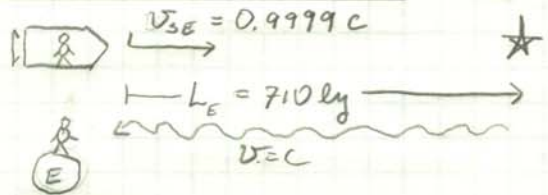 v_SE = 0.9999 c
L_E = 710 ly
v = c
E